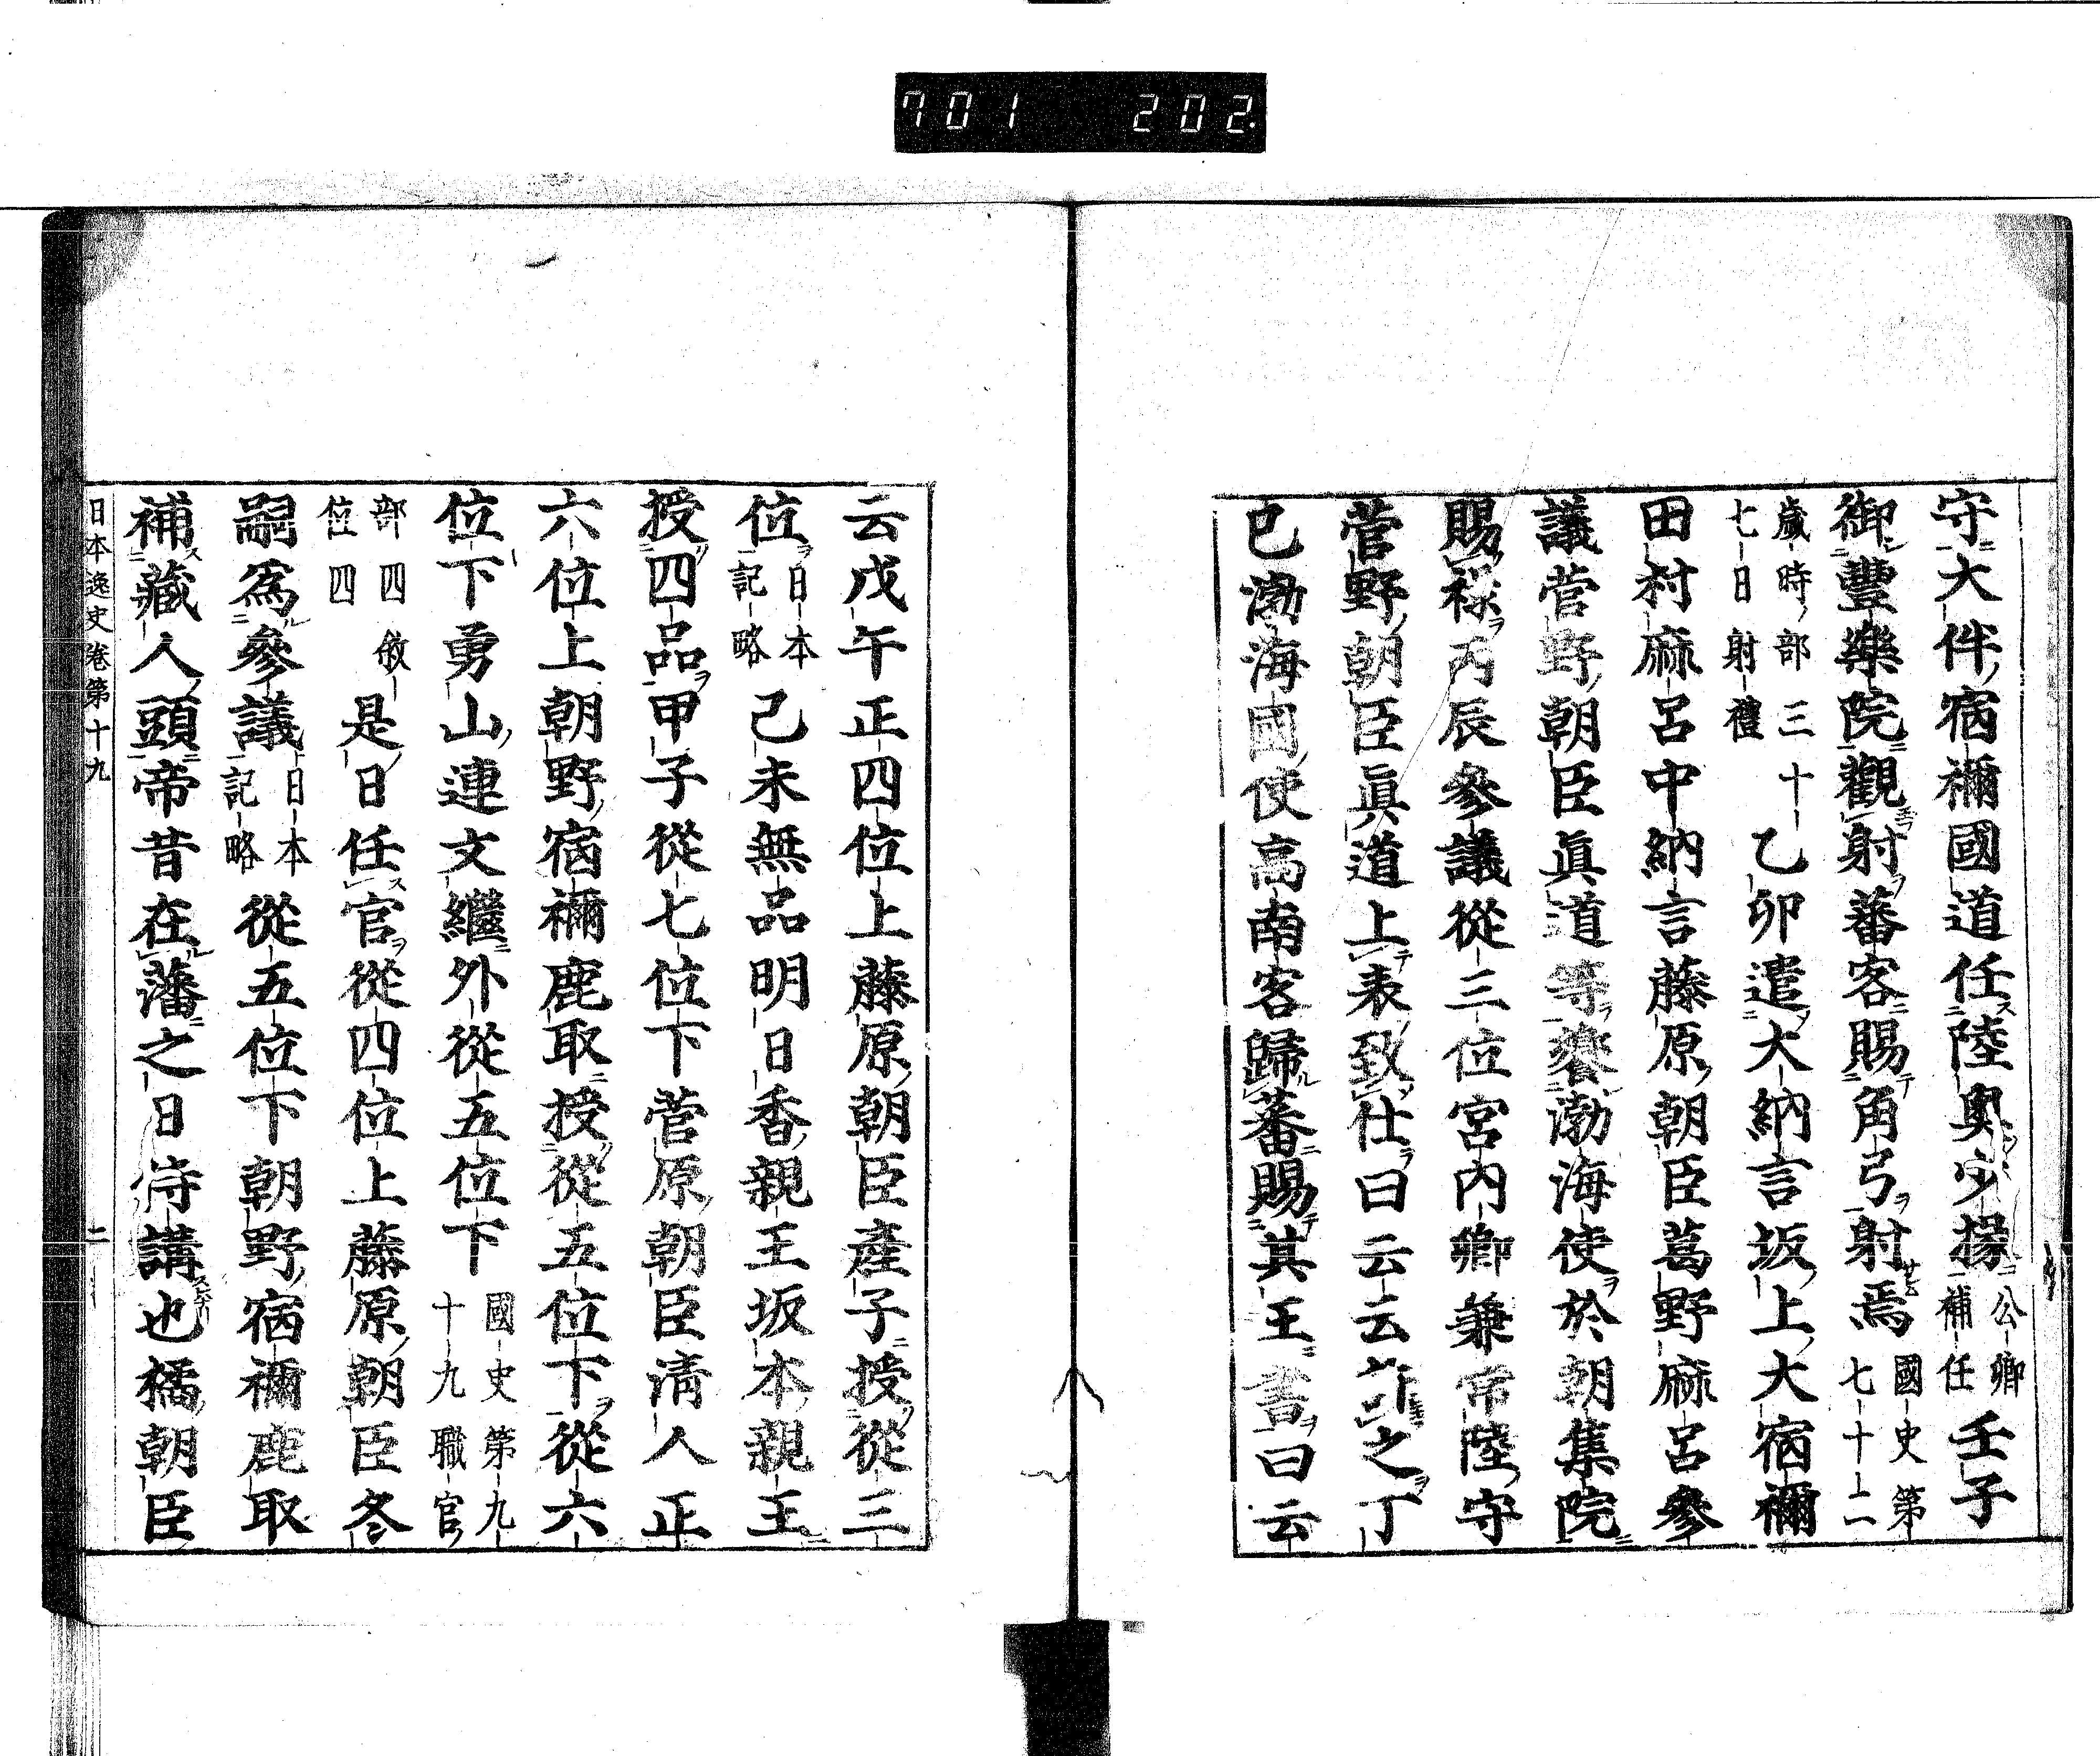 701 202.
守大伴宿禰國道任陸奧少掾公卿補任壬子
御豐樂院觀射蕃客賜角弓射焉國史第七十二
歲時部三十七日射禮乙卯遣大納言坂上大宿禰
田村麻呂中納言藤原朝臣葛野麻呂參
議菅野朝臣眞道等饗渤海使於朝集院
賜祿丙辰參議從三位宮內卿兼常陸守
菅野朝臣眞道上表致仕曰云云許之丁
巳渤海國使高南容歸蕃賜其王書曰云
云戊午正四位上藤原朝臣產子授從三
位日本記略己未無品明日香親王坂本親王
授四品甲子從七位下菅原朝臣清人正
六位上朝野宿禰鹿取授從五位下從六
位下勇山連文繼外從五位下國史第九十九職官
部四敘位四是日任官從四位上藤原朝臣冬
嗣爲參議日本記略從五位下朝野宿禰鹿取
補藏人頭帝昔在藩之日侍講也橘朝臣
日本逸史卷第十九 二